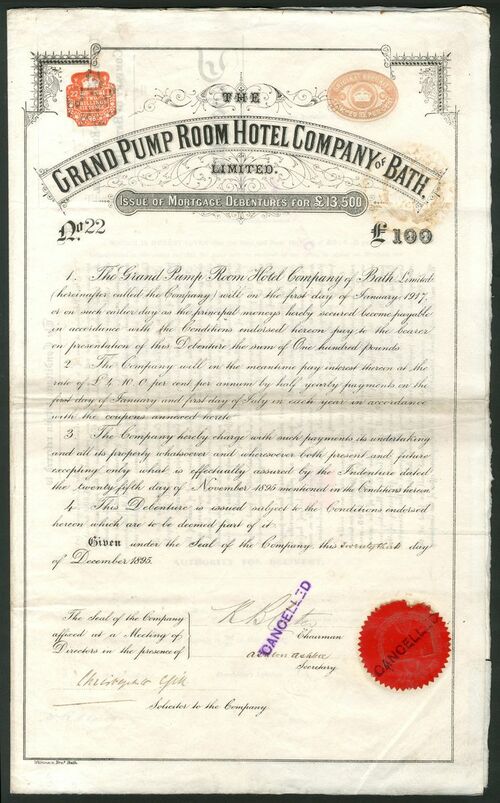 THE
GRAND PUMP ROOM HOTEL COMPANY OF BATH,
LIMITED.
ISSUE OF MORTGAGE DEBENTURES FOR £13,500
No. 22
£100
1. The Grand Pump Room Hotel Company of Bath Limited
(hereinafter called the Company) will on the first day of January 1917,
or on such earlier day as the principal moneys hereby secured become payable
in accordance with the Conditions endorsed hereon pay to the bearer
on presentation of this Debenture the sum of One hundred pounds.
2. The Company will in the meantime pay interest thereon at the
rate of £4. 10. 0 per cent per annum by half yearly payments on the
first day of January and first day of July in each year in accordance
with the coupons annexed hereto.
3. The Company hereby charge with such payments its undertaking
and all its property whatsoever and wheresoever both present and future
excepting only what is effectually assured by the Indenture dated
the twenty fifth day of November 1895 mentioned in the Conditions hereon.
4. This Debenture is issued subject to the Conditions endorsed
hereon which are to be deemed part of it.
Given under the Seal of the Company this day
of December 1895.
The Seal of the Company
affixed at a Meeting of
Directors in the presence of
Chairman
Secretary
Solicitor to the Company
CANCELLED
CANCELLED